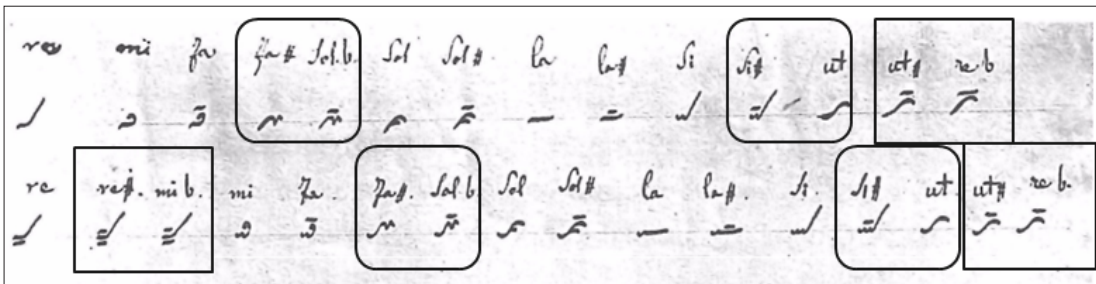 re mi fa fa# sol.b. sol sol# la la# si si# ut ut# re b
re re#. mi b. mi fa. fa#. sol.b sol sol# la la#. si. si# ut. ut# re b.